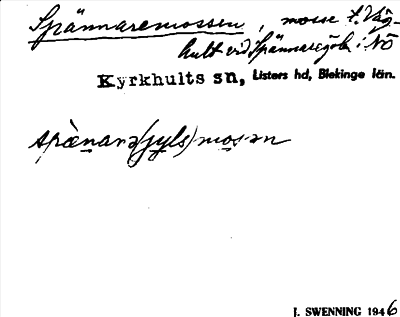 Spännaremossen, mosse t. Väg-
hult vid Spännaregöl i NÖ
Kyrkhults sn, Listers hd, Blekinge län.
spænarə(jyls)mosən
J. SWENNING 1946